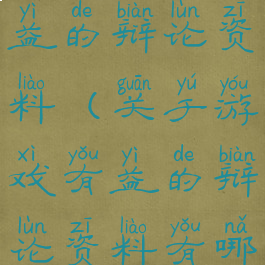 yì de biàn lùn zī
益的辩论资
liào guān yú yóu
料(关于游
xì yǒu yì de biàn
戏有益的辩
lùn zī liào yǒu nǎ
论资料有哪